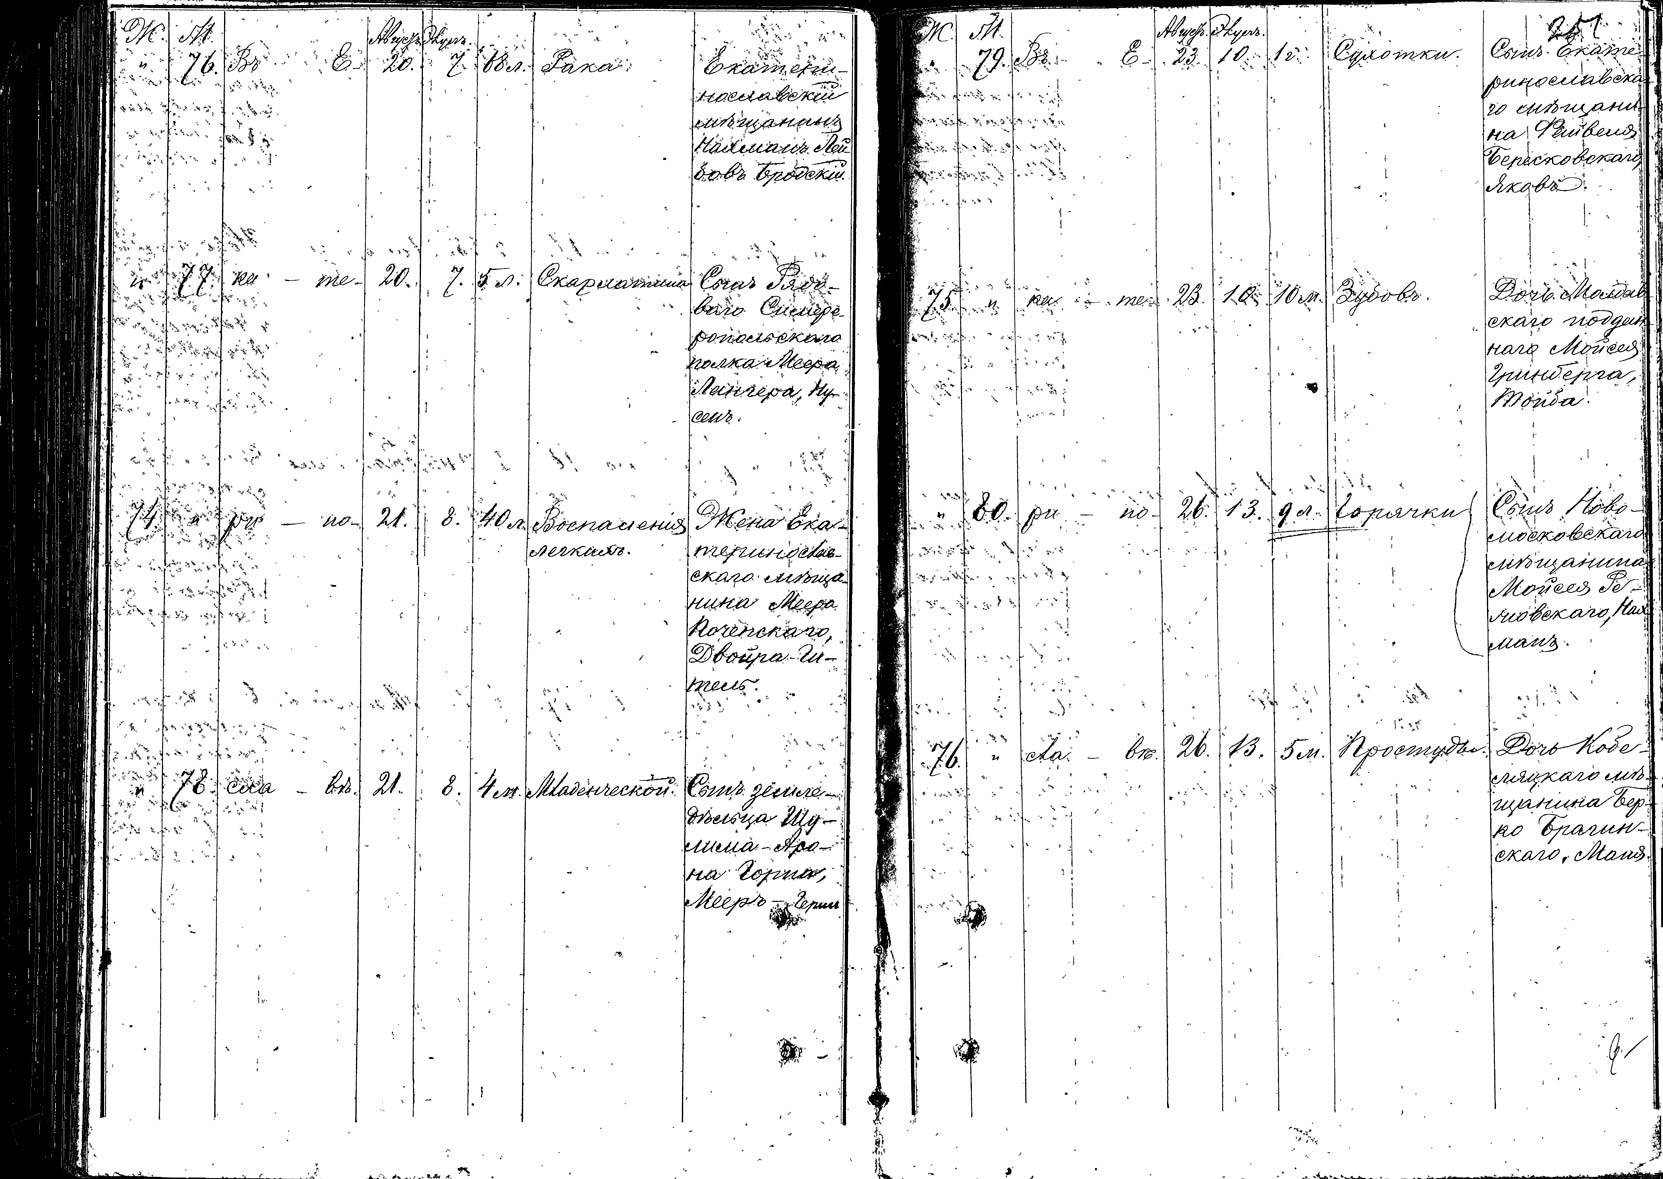 Ж. М. Августъ Элулъ
„ 76. Въ Е- 20. 7. 68 л. Рака. Екатери-
нославскій
мѣщанинъ
Нахманъ Лей
бовъ Бродскій.
„ 77. ка - те- 20. 7. 5 л. Скарлатина Сынъ Рядо-
ваго Симфе-
ропольскаго
полка Меера
Лангера, Ну-
сенъ.
74. „ ри - но- 21. 8. 40 л. Воспаленія Жена Ека-
легкихъ. теринослав-
скаго мѣща-
нина Меера
Поченскаго,
Двойра-Ги-
тель.
„ 78. сла - въ. 21. 8. 4 м. Младенческой. Сынъ земле-
дѣльца Шу-
лима-Аро-
на Горна,
Мееръ-Герш
257
Ж. М. Августъ. Элулъ.
„ 79. Въ Е- 23. 10. 1 г. Сухотки. Сынъ Екате
ринославска-
го мѣщани-
на Файвеля
Бересковскаго,
Яковъ.
75. „ ка - те- 23. 10. 10 м. Зубовъ. Дочь Молдав
скаго поддан
наго Мойсея
Гринберга,
Тойба.
„ 80. ри - но- 26. 13. 9 л. Горячки Сынъ Ново-
московскаго
мѣщанина
Мойсея
Нах
манъ.
76. „ сла - въ. 26. 13. 5 м. Простуды. Дочь Кобе-
ляцкаго мѣ-
щанина Бер-
ко Брагин-
скаго, Маня.